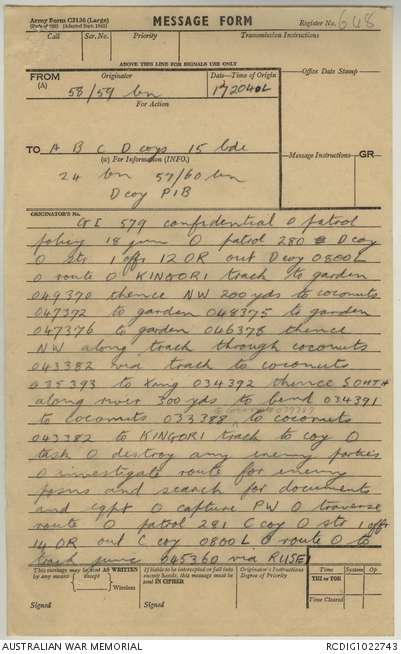 Army Form C2136 (Large)
MESSAGE FORM
Register No. 648
Call Ser. No. Priority Transmission Instructions
ABOVE THIS LINE FOR SIGNALS USE ONLY
FROM
(A)
Originator
58/59 bn
Date—Time of Origin
172040L
Office Date Stamp
For Action
TO A B C D coys 15 bde
(a) For Information (INFO.)
24 bn 57/60 bn
D coy PIB
Message Instructions GR
ORIGINATOR'S No.
GI 579 confidential O patrol
policy 18 jun O patrol 280 D coy
O str 1 offr 12 OR out D coy 0800L
O route O KINGORI track to garden
049370 thence NW 200 yds to coconuts
047372 to garden 048375 to garden
047376 to garden 046378 thence
NW along track through coconuts
043382 via track to coconuts
035393 to Xong 034392 thence SOUTH
along river 300 yds to bend 034391
to coconuts 033388 to coconuts
043382 to KINGORI track to coy O
task O destroy any enemy parties
O investigate route for enemy
posns and search for documents
and eqpt O capture PW O traverse
route O patrol 281 C coy O str 1 offr
14 OR out C coy 0800L O route O to
track junc 045360 via RUSEI
This message may be sent AS WRITTEN
by any means except Wireless
Signed
If liable to be intercepted or fall into
enemy hands, this message must be
sent IN CIPHER
Signed
Originator's Instructions
Degree of Priority
Time System Op
THI or TOR
Time Cleared
AUSTRALIAN WAR MEMORIAL
RCDIG1022743